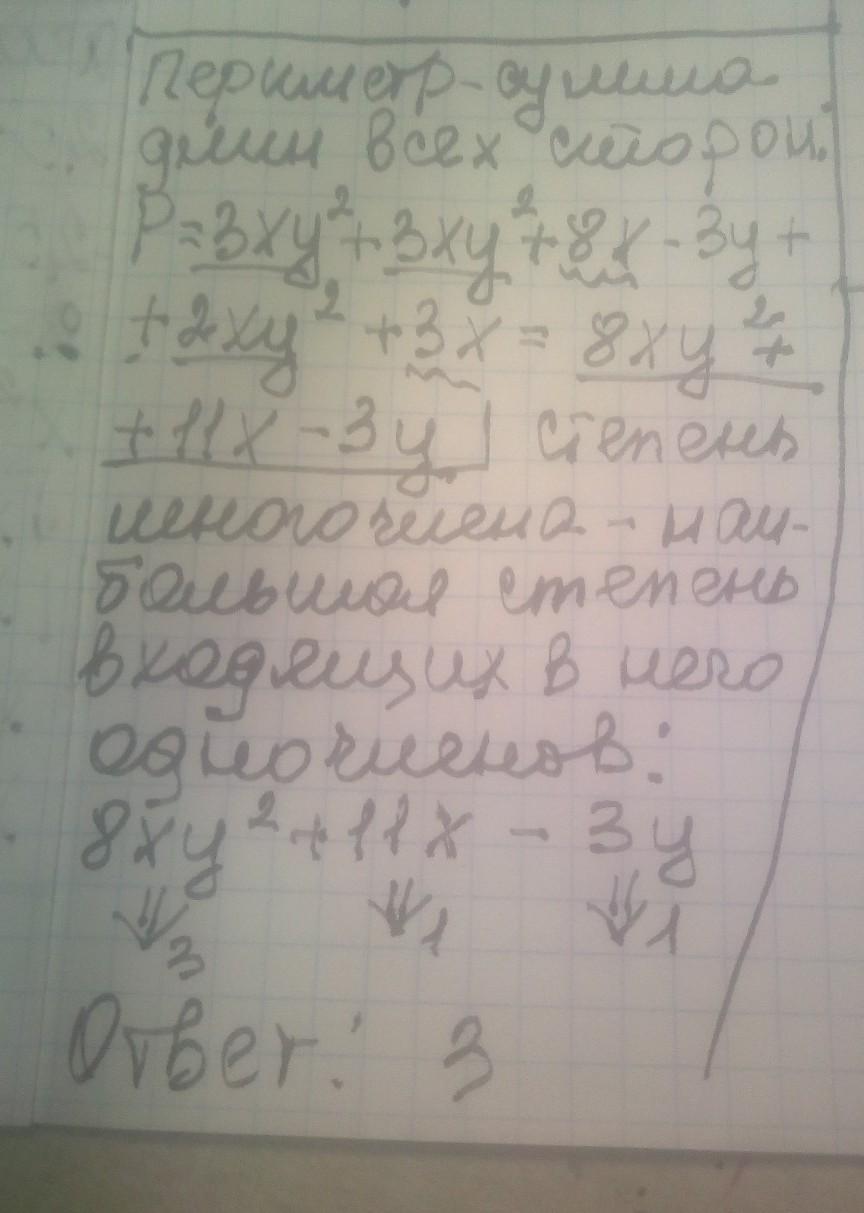 Периметр-сумма
длин всех сторон.
P=3xy²+3xy²+8x-3y+
+2xy²+3x=8xy²+
+11x-3y степень
многочлена-наи-
большая степень
входящих в него
одночленов:
8xy²+11x-3y
3 1 1
Ответ: 3